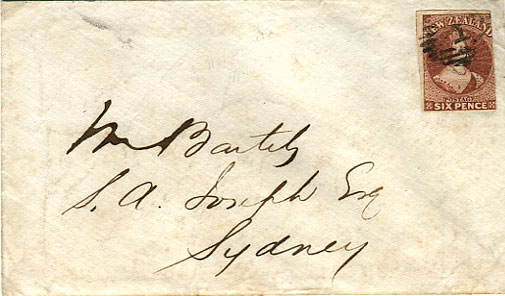 NEW ZEALAND
POSTAGE
SIX PENCE
Mr Bartels
S. A. Joseph Esq
Sydney